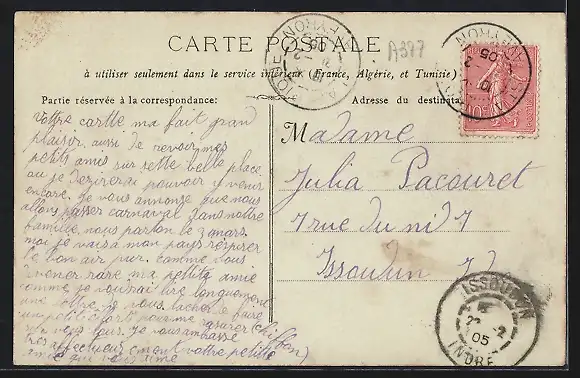 CARTE POSTALE
A377
à utiliser seulement dans le service intérieur (France, Algérie, et Tunisie)
Partie réservée à la correspondance:
Adresse du destinata
Vottre cartte ma fait grand
plaisir aussi de revoir mes
petits amis sur sette belle place
au je dezirerai pouvoir y venir
encore. Je vous annonse que nous
allons passer carnaval dans notre
famille nous parton le 3 mars
moi je vais a mon pays respirer
le bon air pur. comme vous
vener rare ma petite amie
comme je voudrai lire longuement
une lottre je vous
un petit
de vous tous. Je vous ambrasse
tres affectueusement vottre petitte
amie qui vous aime
Chiffon)
Madame
Julia Pacouret
7 rue du nid 7
Issoudun
AVEYRON
05
AVEYRON
05
ISSOUDUN
2
05
INDRE